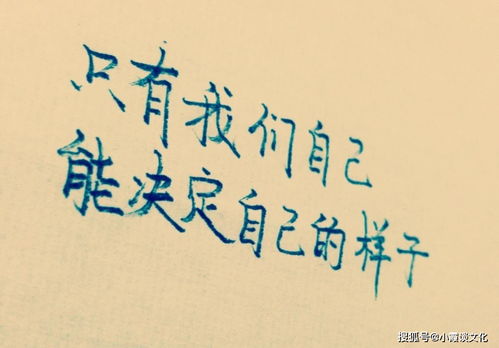 只有我们自己
能决定自己的样子
搜狐号@小霞谈文化